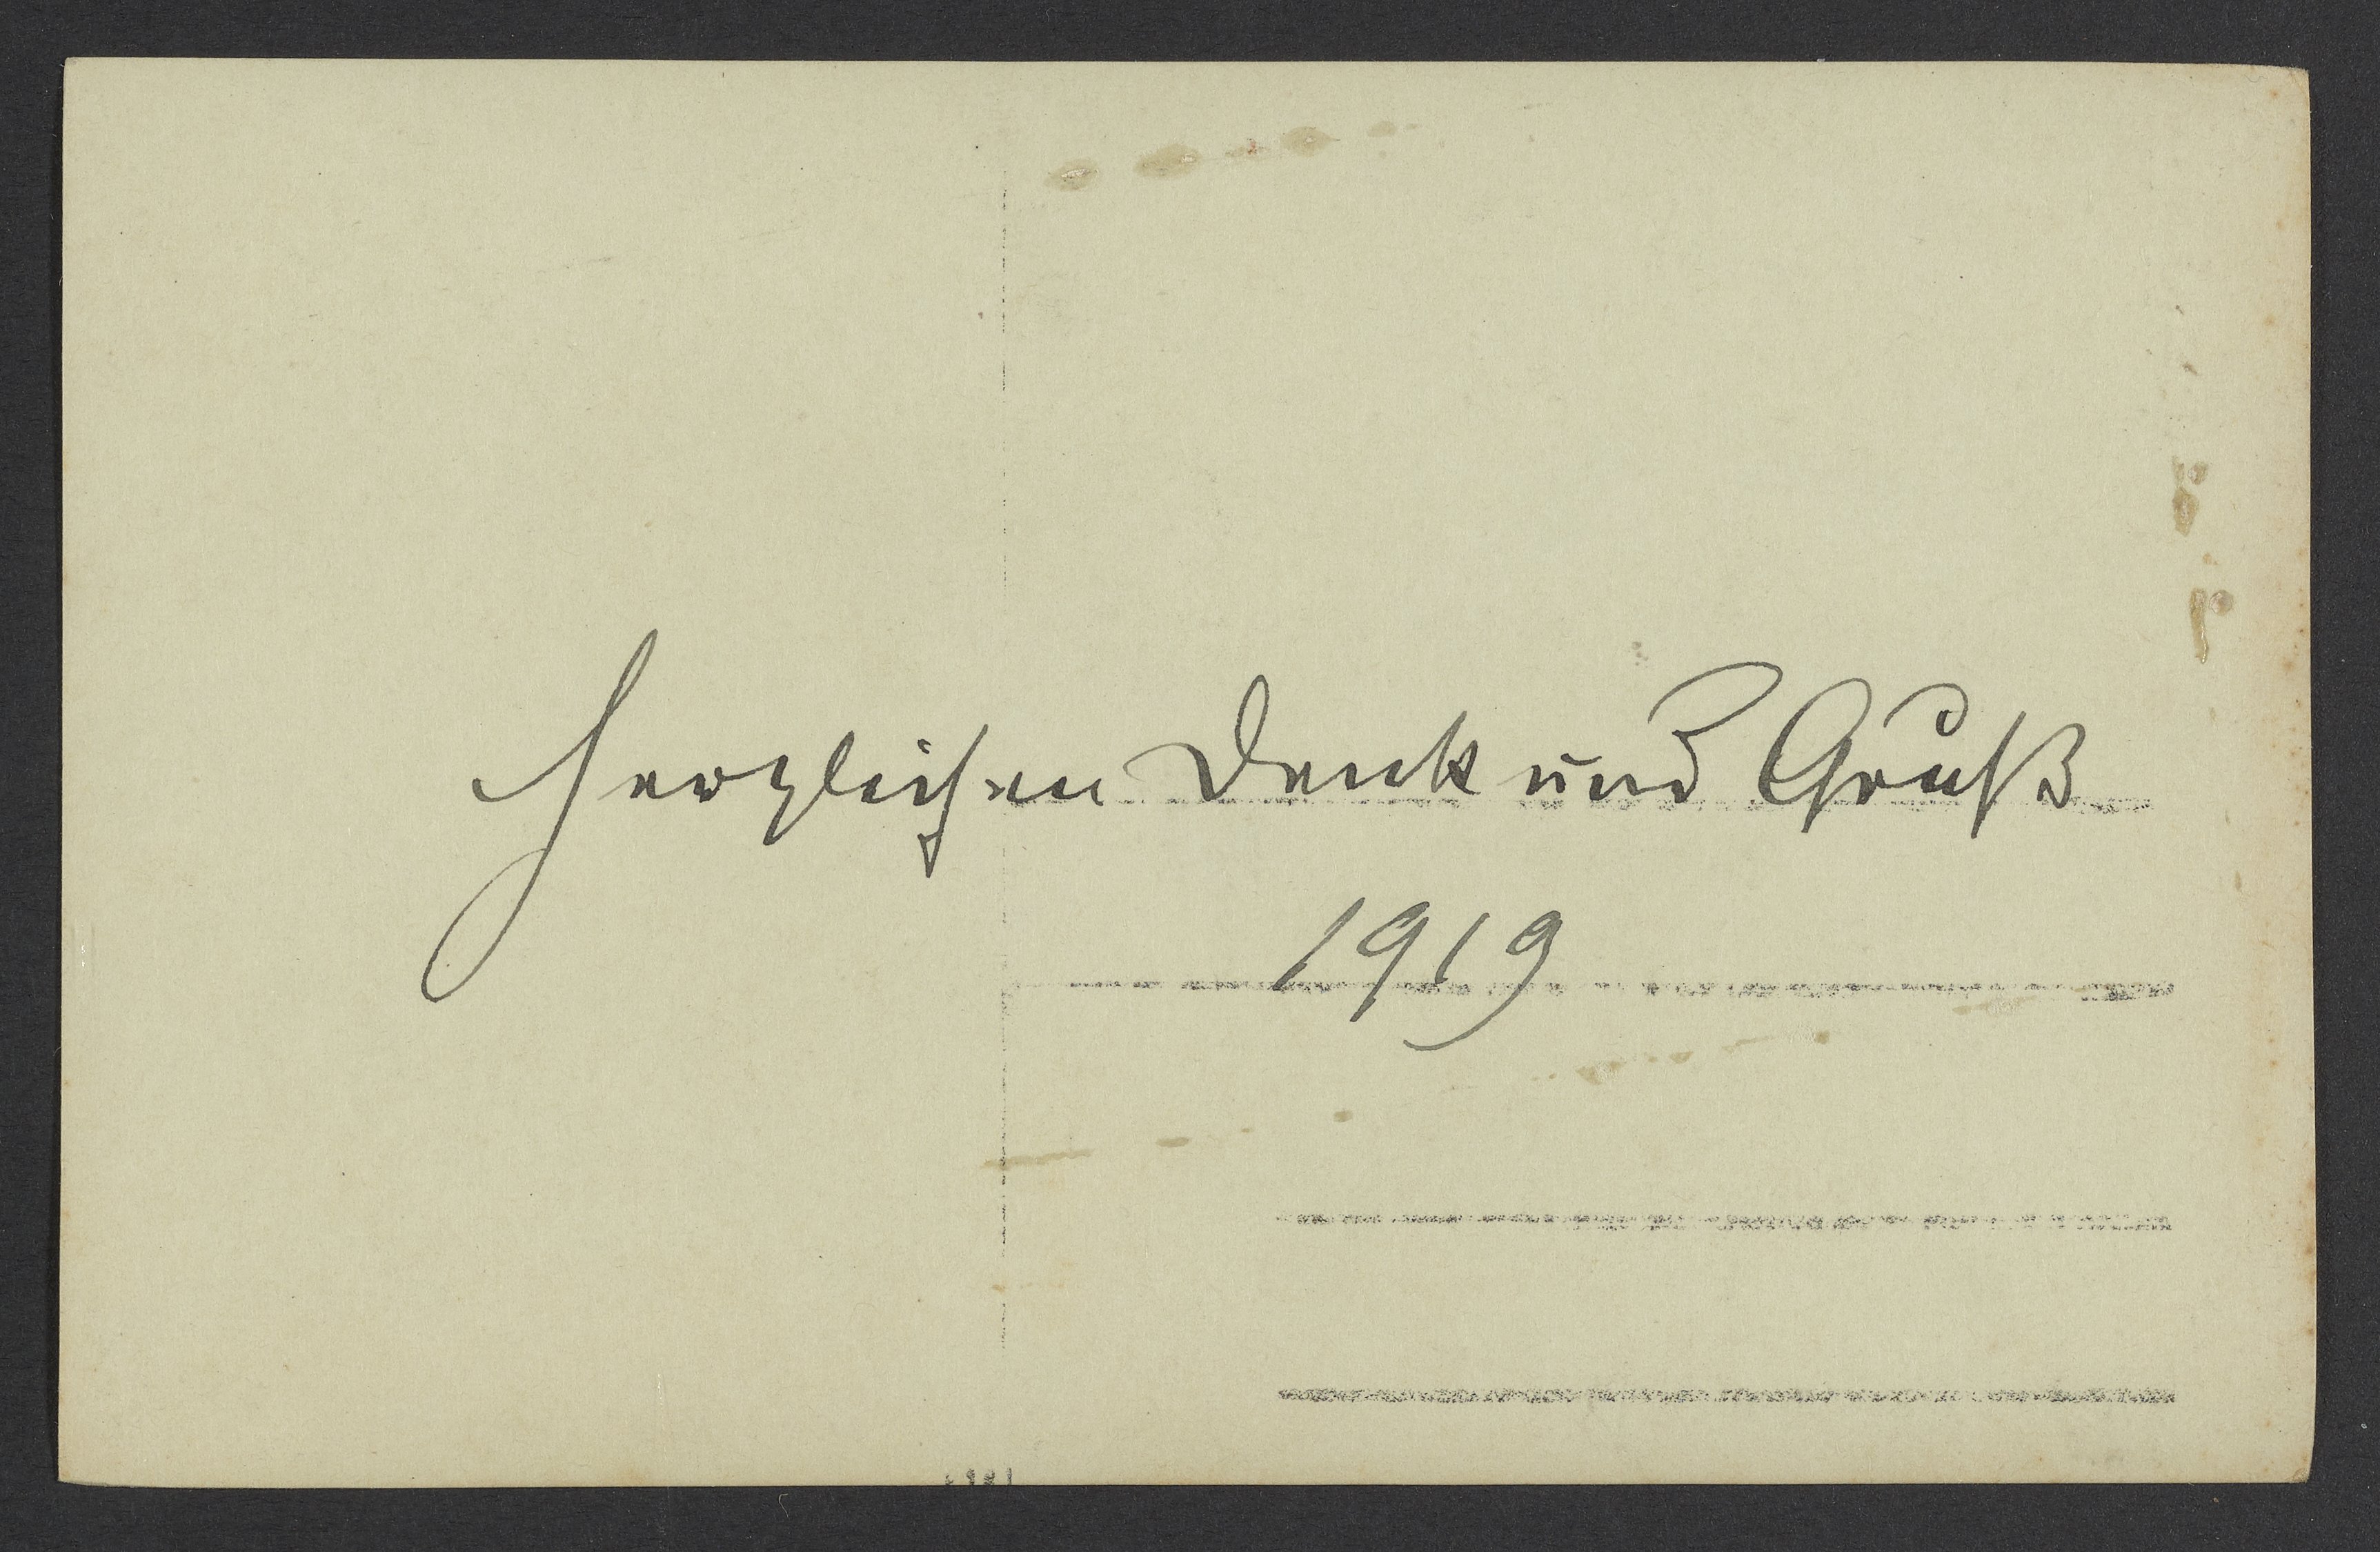 Herzlichen Dank und Gruß
1919